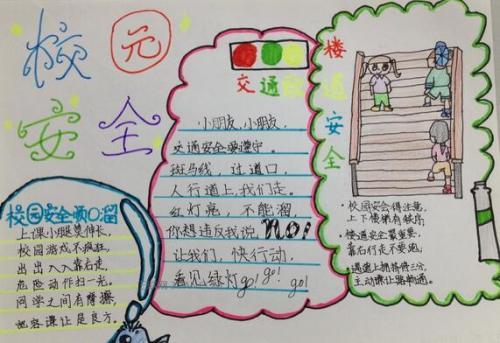 校园
安全
校园安全顺口溜
上课小腿莫伸长,
校园游戏不疯狂,
出出入入靠右走,
危险动作扫一光,
同学之间有摩擦,
宽容谦让是良方。
交通
小朋友,小朋友,
交通安全须遵守。
斑马线,过道口,
人行道上,我们走。
红灯亮,不能溜,
你想违反我说,NO!
让我们,快行动,
看见绿灯go! go! go!
楼
道
安
全
校园安会得注意,
上下楼梯有秩序
楼道安全最重要,
靠右行走不要跑,
遇道上拥挤得三分,
主动谦让路畅通。